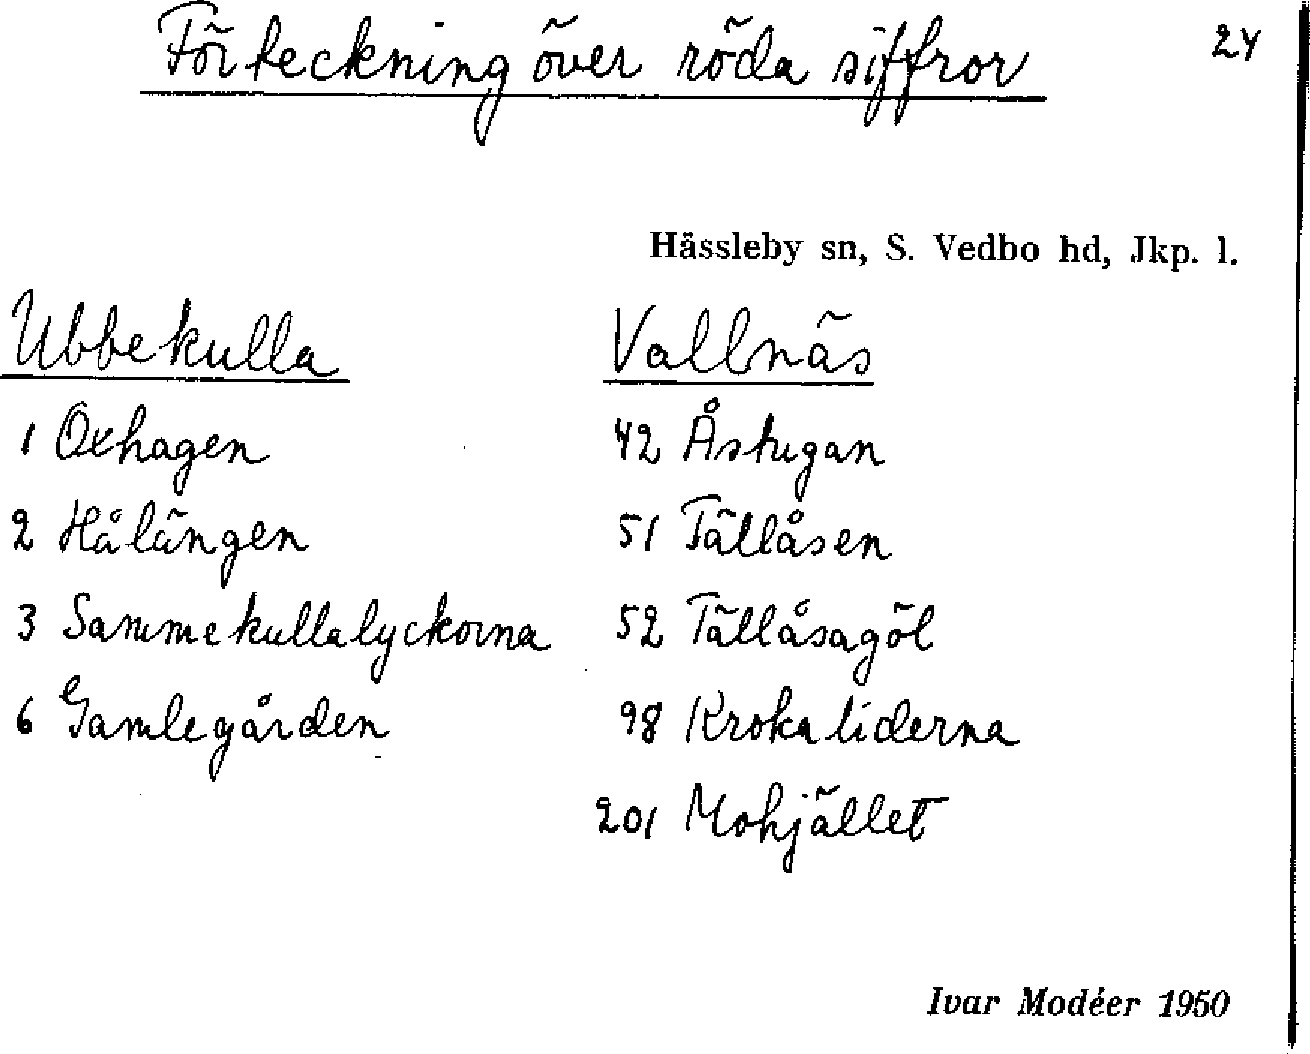 Förteckning över röda siffror
24
Hässleby sn, S. Vedbo hd, Jkp. l.
Ubbekulla
1 Oxhagen
2 Hålängen
3 Sammekullalyckorna
6 Gamlegården
Vallnäs
42 Åstugan
51 Tällåsen
52 Tällåsagöl
98 Krokaliderna
201 Mohjället
Ivar Modéer 1950